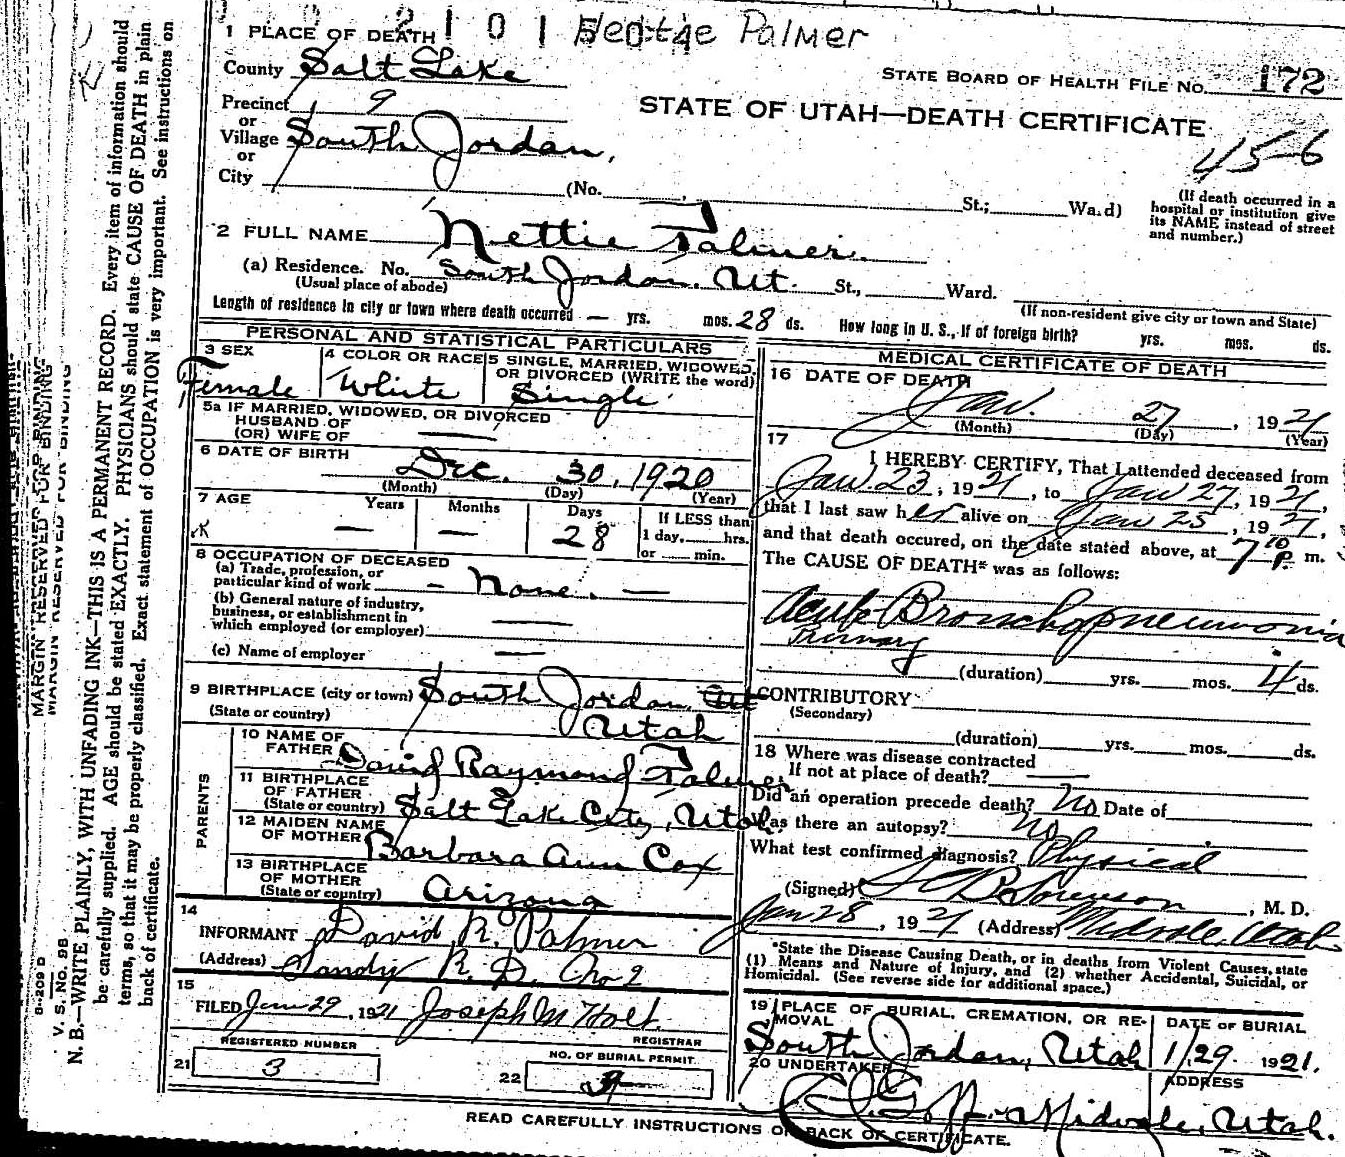 2 1 0 1 5 0 4 Nettie Palmer
1 PLACE OF DEATH
County Salt Lake
STATE BOARD OF HEALTH FILE No. 172
Precinct 9
STATE OF UTAH—DEATH CERTIFICATE
or
Village South Jordan,
or
456
City (No. St.; Ward)
(If death occurred in a
hospital or institution give
its NAME instead of street
and number.)
2 FULL NAME Nettie Palmer
(a) Residence. No. South Jordan, Ut. St., Ward.
(Usual place of abode)
(If non-resident give city or town and State)
Length of residence in city or town where death occurred — yrs. mos. 28 ds. How long in U. S., if of foreign birth? yrs. mos. ds.
PERSONAL AND STATISTICAL PARTICULARS
3 SEX
Female
4 COLOR OR RACE
White
5 SINGLE, MARRIED, WIDOWED,
OR DIVORCED (WRITE the word)
Single
5a IF MARRIED, WIDOWED, OR DIVORCED
HUSBAND OF
(OR) WIFE OF —
6 DATE OF BIRTH
Dec. 30, 1920
(Month) (Day) (Year)
7 AGE Years Months Days
— — 28
If LESS than
1 day, hrs.
or min.
8 OCCUPATION OF DECEASED
(a) Trade, profession, or
particular kind of work - None. —
(b) General nature of industry,
business, or establishment in
which employed (or employer) —
(c) Name of employer —
9 BIRTHPLACE (city or town) South Jordan, Ut
(State or country) Utah
PARENTS
10 NAME OF
FATHER David Raymond Palmer
11 BIRTHPLACE
OF FATHER
(State or country) Salt Lake City, Utah
12 MAIDEN NAME
OF MOTHER Barbara Ann Cox
13 BIRTHPLACE
OF MOTHER
(State or country) Arizona
14
INFORMANT David R. Palmer
(Address) Sandy R. D. No 2
15
FILED Jan 29, 1921 Joseph M Holt
REGISTRAR
REGISTERED NUMBER
21 3
NO. OF BURIAL PERMIT
22
MEDICAL CERTIFICATE OF DEATH
16 DATE OF DEATH
Jan. 27, 1921
(Month) (Day) (Year)
17
I HEREBY CERTIFY, That I attended deceased from
Jan. 23, 1921, to Jan 27, 1921,
that I last saw her alive on Jan 25, 1921,
and that death occured, on the date stated above, at 7 10 P. m.
The CAUSE OF DEATH* was as follows:
Acute Bronchopneumonia
Primary
(duration) yrs. mos. 4 ds.
CONTRIBUTORY
(Secondary)
(duration) yrs. mos. ds.
18 Where was disease contracted
If not at place of death? —
Did an operation precede death? No Date of
Was there an autopsy? No
What test confirmed diagnosis? Physical
(Signed) Sorenson, M. D.
Jan 28, 1921 (Address) Midvale, Utah
*State the Disease Causing Death, or in deaths from Violent Causes, state
(1) Means and Nature of Injury, and (2) whether Accidental, Suicidal, or
Homicidal. (See reverse side for additional space.)
19 PLACE OF BURIAL, CREMATION, OR RE-
MOVAL
South Jordan, Utah
DATE OF BURIAL
1/29 1921.
20 UNDERTAKER
Goff
ADDRESS
Midvale, Utah.
READ CAREFULLY INSTRUCTIONS ON BACK OF CERTIFICATE.
MARGIN RESERVED FOR BINDING
MARGIN RESERVED FOR BINDING
V. S. NO. 9B
N. B.—WRITE PLAINLY, WITH UNFADING INK—THIS IS A PERMANENT RECORD. Every item of information should
be carefully supplied. AGE should be stated EXACTLY. PHYSICIANS should state CAUSE OF DEATH in plain
terms, so that it may be properly classified. Exact statement of OCCUPATION is very important. See instructions on
back of certificate.